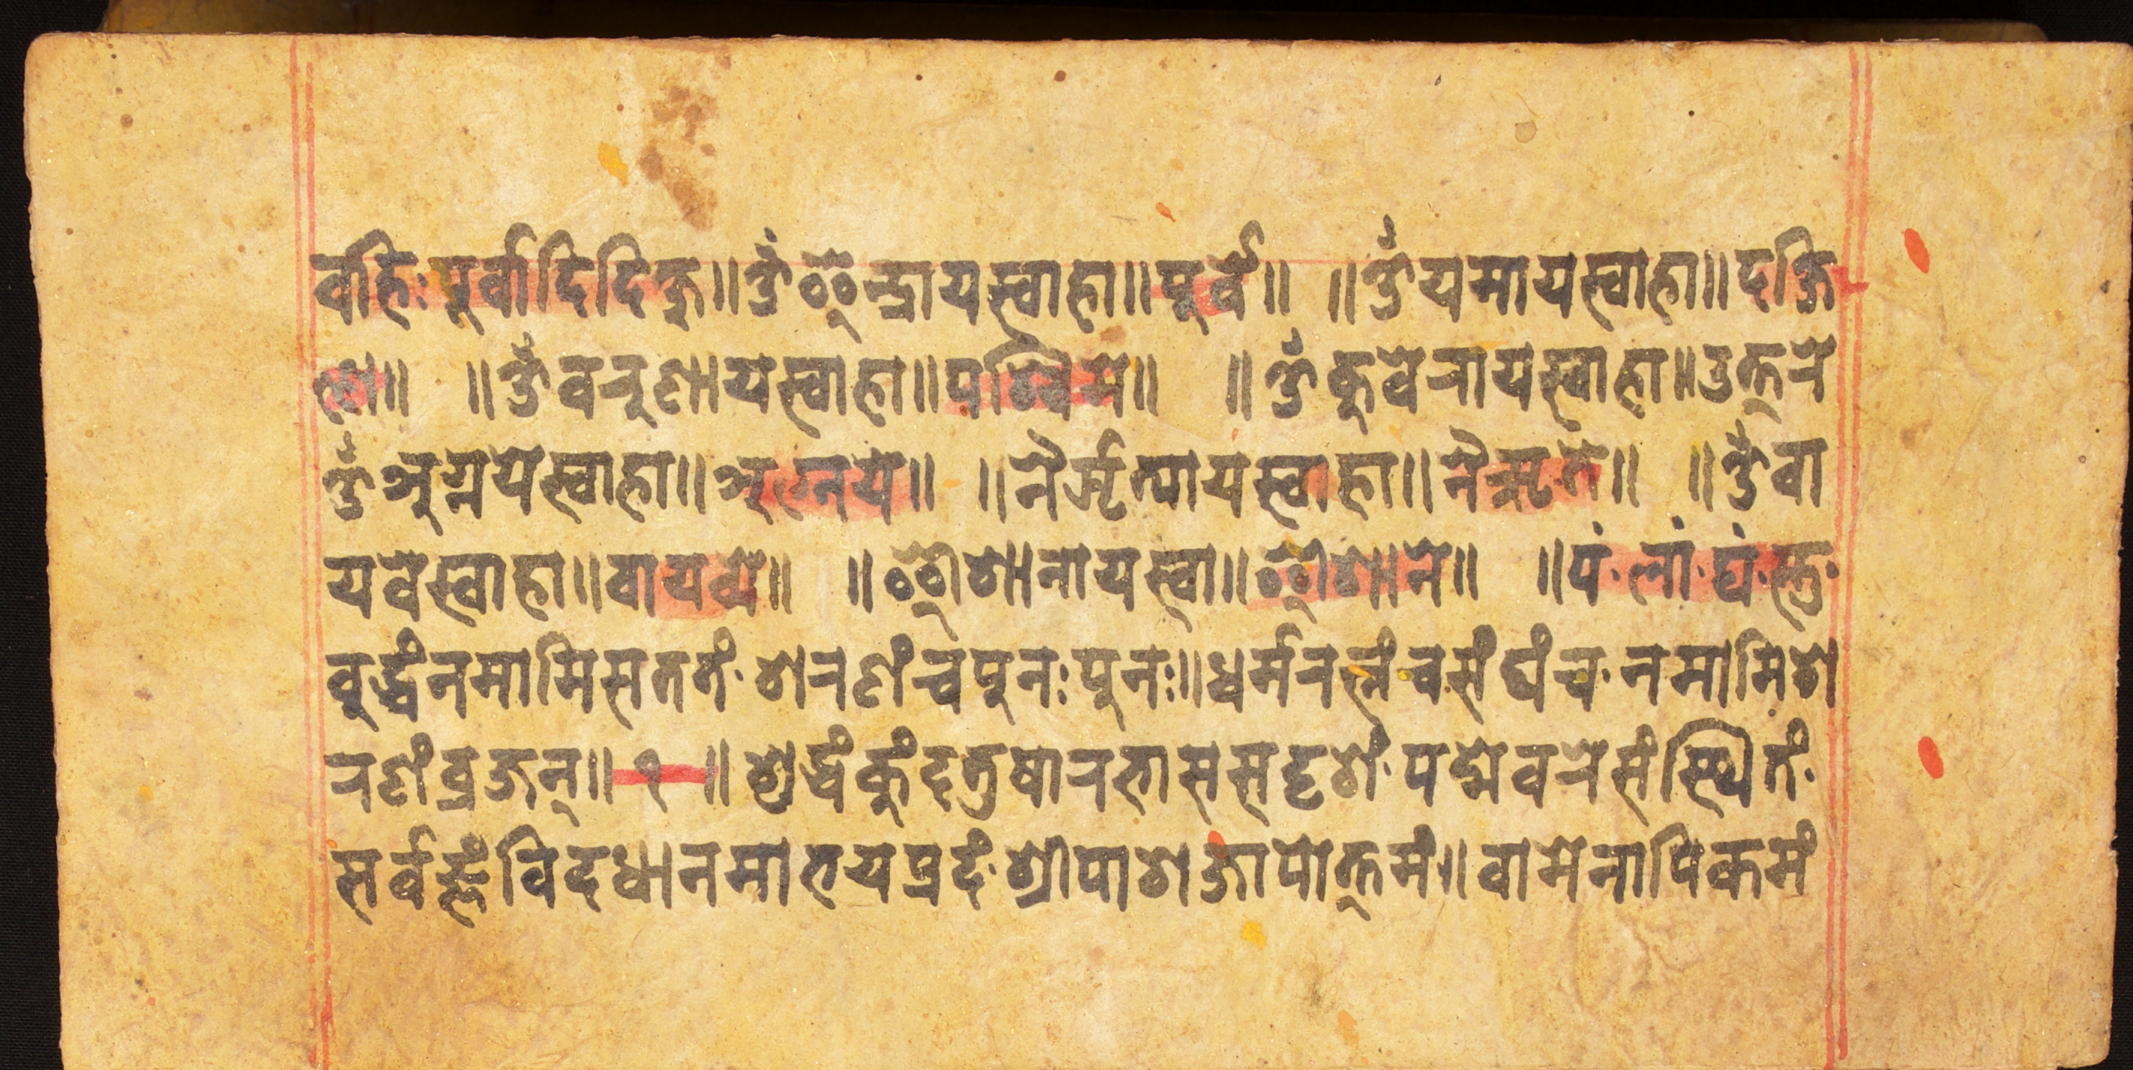 वहिःपूर्वादिदिक्षु॥ॐइन्द्रायस्वाहा॥पूर्वे॥ ॥ॐयमायस्वाहा॥दक्षि
णे॥ ॥ॐवरुणायस्वाहा॥पश्चिमे॥ ॥ॐकुवेरायस्वाहा॥उत्तरे
ॐअग्नयेस्वाहा॥अग्नये॥ ॥नैर्ऋत्यायस्वाहा॥नैऋते॥ ॥ॐवा
यवेस्वाहा॥वायव्ये॥ ॥ईशानायस्वा॥ईशाने॥ ॥पं·लां·घं·स्तु·
वुद्धंनमामिसततं·शरणंचपुनःपुनः॥धर्मरत्नंचसंघंच·नमामिश
रणंव्रजन्॥१॥शुद्धंकुंदतुषारहाससदृशं·पद्मेवरेसंस्थितं·
सर्वज्ञंविदधानमाभयप्रदं·श्रीपाशजापोत्तमं॥वामेनापिकमं